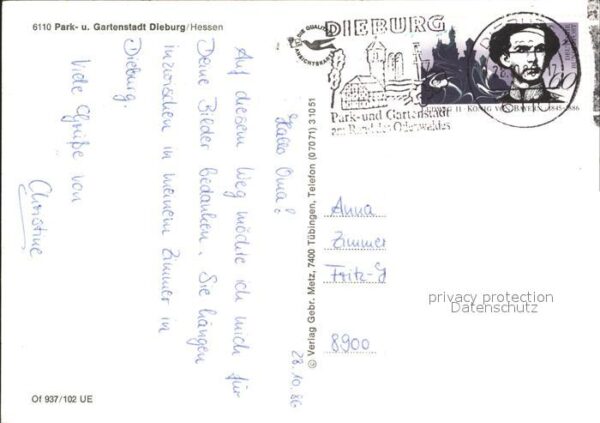 6110 Park- u. Gartenstadt Dieburg/Hessen
Hallo Oma!
Auf diesem Weg möchte ich mich für
Deine Bilder bedanken. Sie hängen
inzwischen in meinem Zimmer in
Dieburg.
Viele Grüße von
Christine
28.10.86
Of 937/102 UE
© Verlag Gebr. Metz, 7400 Tübingen, Telefon (07071) 31051
DIEBURG
Park- und Gartenstadt
am Rand des Odenwaldes
DIEBURG
60
LUDWIG II · KÖNIG VON BAYERN · 1845-1886
Anna
Zimmer
Fritz-
8900
privacy protection
Datenschutz